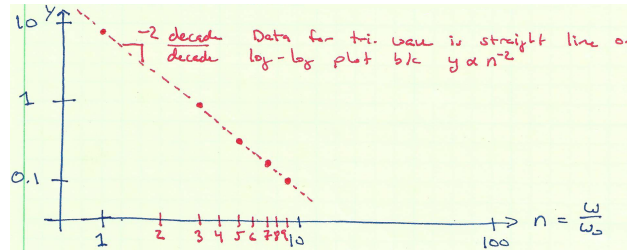 10 y
-2 decade Data for tri. wave is straight line o
decade log-log plot b/c y ∝ n⁻²
1
0.1
1 2 3 4 5 6 7 8 9 10 100
n = ω/ω₀